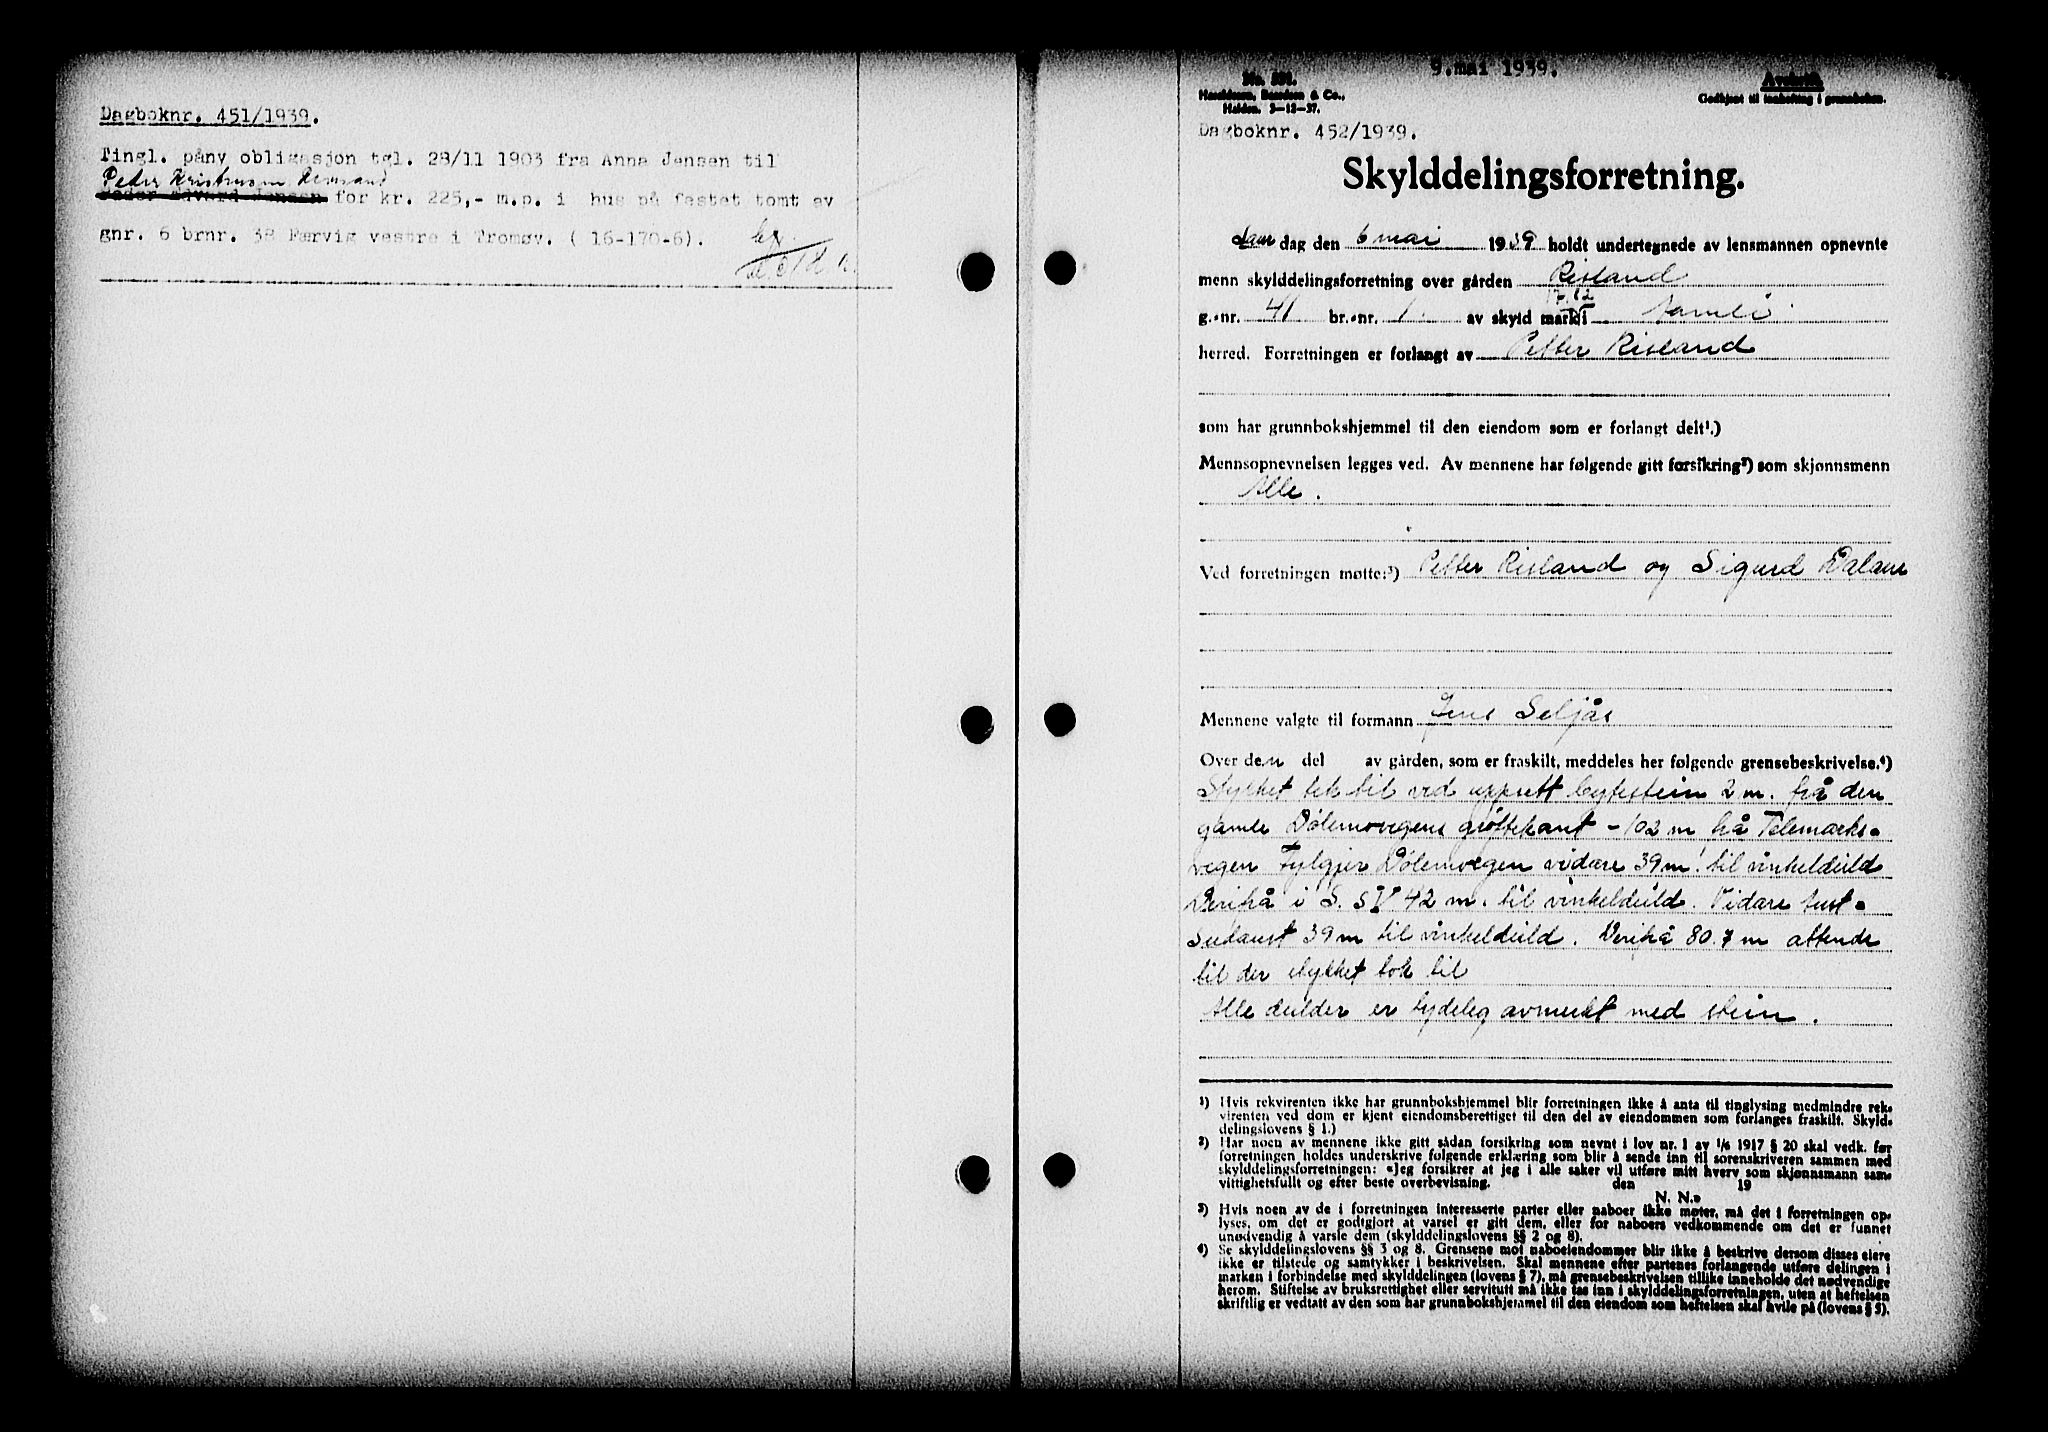 Dagboknr. 451/1939.
Tingl. påny obligasjon tgl. 28/11 1903 fra Anna Jensen til
Peder Kristensen
Peder Edvard Jensen for kr. 225,- m.p. i hus på festet tomt av
gnr. 6 brnr. 38 Færvig vestre i Tromøy. ( 16-170-6).
9.mai 1939.
Avskrift.
Haraldssen, Berntsen & Co.,
Godkjent til innhefting i grunnboken.
Halden. 3-12-37.
Dagboknr. 452/1939.
Skylddelingsforretning.
Laur dag den 6 mai 1939 holdt undertegnede av lensmannen opnevnte
menn skylddelingsforretning over gården Risland
g.-nr. 41 br.-nr. 1. av skyld mark i Åmli
herred. Forretningen er forlangt av Petter Risland
som har grunnbokshjemmel til den eiendom som er forlangt delt¹.)
Mennsopnevnelsen legges ved. Av mennene har følgende gitt forsikring²) som skjønnsmenn
Alle.
Ved forretningen møtte:³) Petter Risland og Sigurd Dalane
Mennene valgte til formann Jens Seljås
Over den del av gården, som er fraskilt, meddeles her følgende grensebeskrivelse.⁴)
Stykket tek til ved uppsett bytestein 2 m. frå den
gamle Dölemovegens grøftekant - 102 m frå Telemarks-
vegen Fylgjer Dölemvegen vidare 39 m. til vinkeldeild
Derifrå i S. SV 42 m. til vinkeldeild. Vidare aust-
sudaust 39 m til vinkeldeild. Derifrå 80.7 m attende
til der stykket tok til
Alle deilder er tydeleg avmerkt med stein.
¹) Hvis rekvirenten ikke har grunnbokshjemmel blir forretningen ikke å anta til tinglysing medmindre rek-
virenten ved dom er kjent eiendomsberettiget til den del av eiendommen som forlanges fraskilt. Skyld-
delingslovens § 1.)
²) Har noen av mennene ikke gitt sådan forsikring som nevnt i lov nr. 1 av 1/6 1917 § 20 skal vedk. før
forretningen holdes underskrive følgende erklæring som blir å sende inn til sorenskriveren sammen med
skylddelingsforretningen: «Jeg forsikrer at jeg i alle saker vil utføre mitt hverv som skjønnsmann sam-
vittighetsfullt og efter beste overbevisning. den 19
N. N.»
³) Hvis noen av de i forretningen interesserte parter eller naboer ikke møter, må det i forretningen op-
lyses, om det er godtgjort at varsel er gitt dem, eller for naboers vedkommende om det er funnet
unødvendig å varsle dem (skylddelingslovens §§ 2 og 8).
⁴) Se skylddelingslovens §§ 3 og 8. Grensene mot naboeiendommer blir ikke å beskrive dersom disses eiere
ikke er tilstede og samtykker i beskrivelsen. Skal mennene efter partenes forlangende utføre delingen i
marken i forbindelse med skylddelingen (lovens § 7), må grensebeskrivelsen tillike inneholde det nødvendige
herom. Stiftelse av bruksrettighet eller servitutt må ikke tas inn i skylddelingsforretningen, uten at heftelsen
skriftlig er vedtatt av den som har grunnbokshjemmel til den eiendom som heftelsen skal hvile på (lovens § 5).